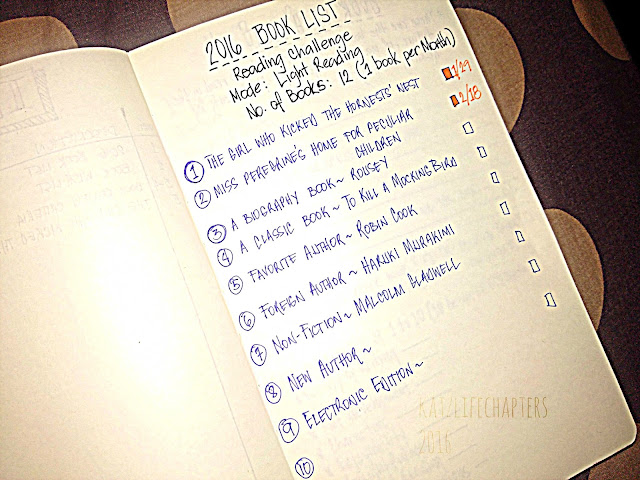 2016 BOOK LIST
Reading Challenge
Mode: Light Reading
No. of Books: 12 (1 book per Month)
1 THE GIRL WHO KICKED THE HORNESTS' NEST 1/29
2 MISS PEREGRINE'S HOME FOR PECULIAR 2/18
CHILDREN
3 A BIOGRAPHY BOOK ~ ROUSEY
4 A CLASSIC BOOK ~ TO KILL A MOCKINGBIRD
5 FAVORITE AUTHOR ~ ROBIN COOK
6 FOREIGN AUTHOR ~ HARUKI MURAKIMI
7 NON-FICTION ~ MALCOLM GLADWELL
8 NEW AUTHOR ~
9 ELECTRONIC EDITION ~
10
KATZLIFECHAPTERS
2016